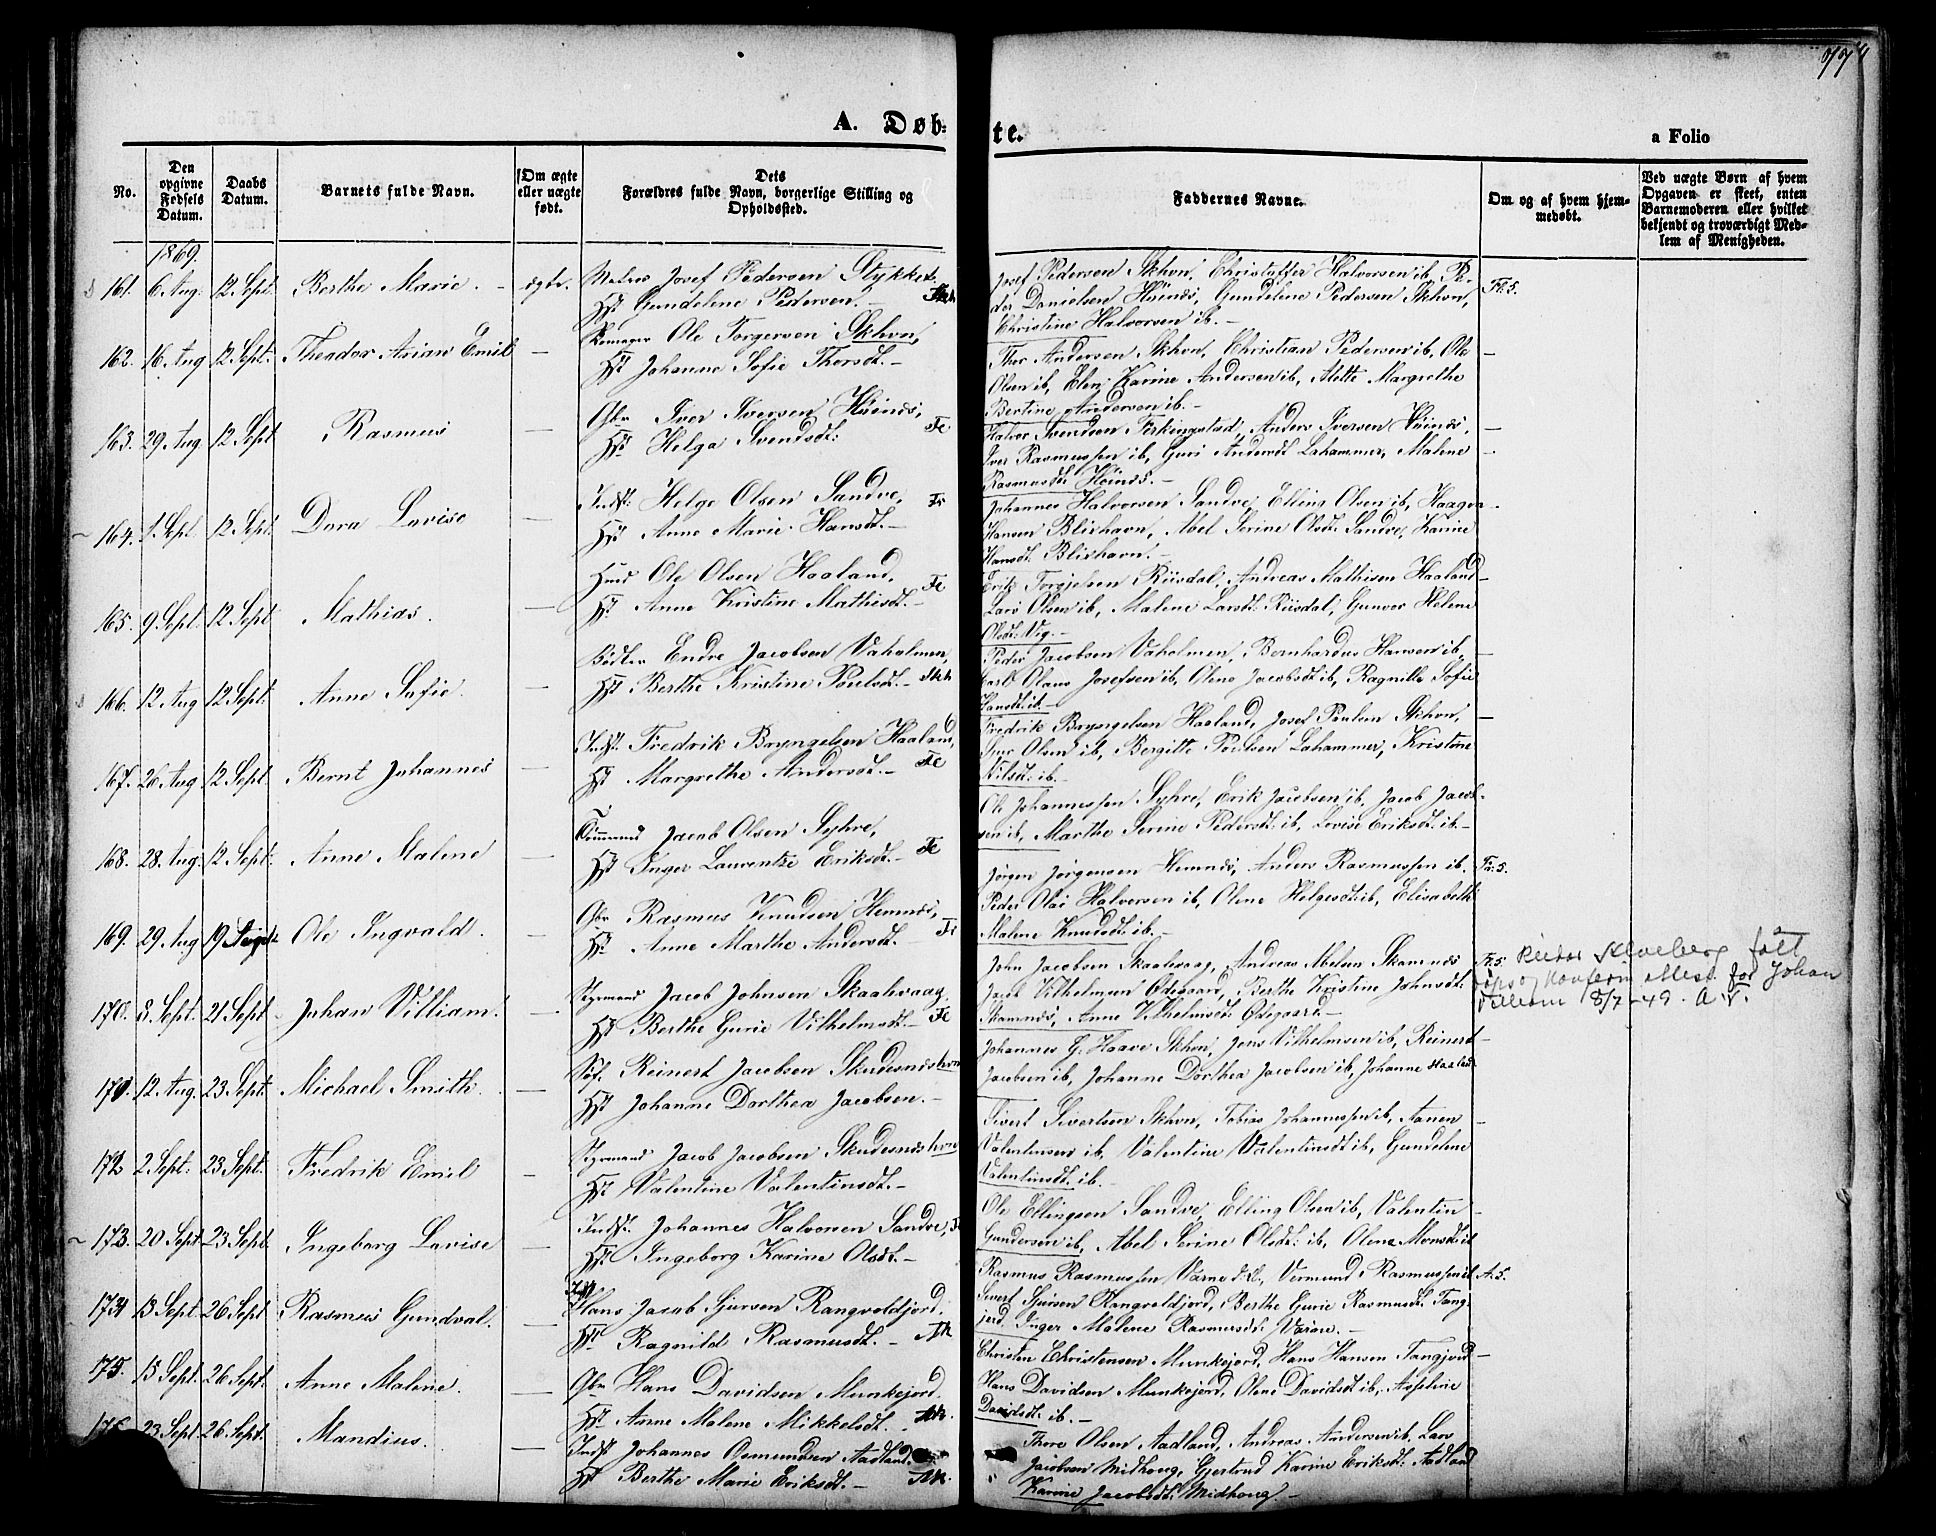 77
A. Døb-
te.
a Folio
No.
Den opgivne Fødsels Datum.
Daabs Datum.
Barnets fulde Navn.
Om ægte eller uægte født.
Dets Forældres fulde Navn, borgerlige Stilling og Opholdssted.
Faddernes Navne.
Om og af hvem hjemmedøbt.
Ved uægte Børn af hvem Opgaven er skeet, enten Barnemoderen eller hvilket bekjendt og troværdigt Medlem af Menigheden.
1869.
161. 6 Aug. 12 Sept. Berthe Marie. - ægte.
Josef Pedersen
Hst. Gundelene Pedersen. -
Josef Pedersen Skhvn, Christoffer Halvorsen ib, Pe-
der Danielsen Høines, Gundelene Pedersen Skhvn,
Christine Halvorsen ib. -
162. 16 Aug 12 Sept. Theodor Arian Emil -
Ole Torgersen Skhvn,
Hst Johanne Sofie Thorsdt. -
Thor Andersen Skhvn, Christian Pedersen ib, Ole
Olsen ib, Elen Karine Andersen ib, Alette Margrethe
Bertine Andersen ib. -
163. 29 Aug 12 Sept Rasmus -
Gbr Iver Iversen Høines, Fe
Hst Helga Svendsdt.
Halvor Svendsen Ferkingstad, Anders Iversen Høines,
Iver Rasmussen ib, Guri Andersdt Lahammer, Malene
Rasmusdt Høines. -
164. 1 Sept. 12 Sept. Dora Lovise -
Indst. Helge Olsen Sandve, Fe
Hst Anne Marie Hansdt. -
Johannes Halvorsen Sandve, Elling Olsen ib, Haagen
Hansen Blixhavn, Abel Serine Olsdt. Sandve, Karine
Hansdt. Blixhavn. -
165. 9 Sept. 12 Sept Mathias. -
Ole Olsen Haaland, Fe
Hst. Anne Kristine Mathisdt. -
Erik Torgjelsen Riisdal, Andreas Mathisen Haaland
Lars Olsen ib, Malene Larsdt. Riisdal, Gunvor Helene
Olsdt. Vig. -
166. 12 Aug 12 Sept. Anne Sofie. -
Bødker Endre Jacobsen Vaholmen,
Hst Berthe Kristine Poulsdt. - Skh
Peder Jacobsen Vaholmen, Bernhardus Hansen ib,
Carl Olaus Josefsen ib, Olene Jacobsdt ib, Ragnille Sofie
Hansdt. ib. -
167. 26 Aug 12 Sept. Bernt Johannes -
Indst. Fredrik Bryngelsen Haaland, Fe
Hst Margrethe Andersdt. -
Fredrik Bryngelsen Haaland, Josef Poulsen Skhvn,
Olsen ib, Bergitte Poulsen Lahammer, Kristine
Nilsdt. ib. -
168. 28. Aug. 12 Sept. Anne Malene -
Tømmermand Jacob Olsen Syhre, Fe
Hst Inger Laurentze Eriksdt. -
Ole Johannessen Syhre, Erik Jacobsen ib, Jacob Jacob-
sen ib, Marthe Serine Pedersdt. ib, Lovise Eriksdt. ib. -
169. 29 Aug 19 Sept. Ole Ingvald. -
Gbr Rasmus Knudsen Hemnes,
Hst. Anne Marthe Andersdt. - Fe
Jørgen Jørgensen Hemnes, Anders Rasmussen ib.
Peder Olai Halvorsen ib, Olene Helgesdt ib, Elisabeth
Malene Knudsdt ib. -
170. 5 Sept. 21 Sept Johan Villiam. -
Styrmand Jacob Johnsen Skaalevaag,
Hst Berthe Gurie Vilhelmsdt. - Fe
John Jacobsen Skaalevaag, Andreas Abelsen Skamnes
Jacob Vilhelmsen Ødegaard, Berthe Kristine Johnsdt.
Skamnes, Anne Vilhelmsdt. Ødegaard. -
fått
attest for Johan
Villiam 8/7-49. A.V.
171. 12 Aug. 23 Sept. Michael Smith. -
Reinert Jacobsen Skudesneshvn
Hst Johanne Dorthea Jacobsen. -
Johannes G. Haave Skhvn, Jens Vilhelmsen ib, Reinert
Jacobsen ib, Johanne Dorthea Jacobsen ib, Johanne Haaland
172 2 Sept. 23 Sept. Fredrik Emil -
Styrmand Jacob Jacobsen Skudesneshvn
Hst Valentine Valentinsdt. -
Sivert Sivertsen Skhvn, Tobias Johannessen ib, Aanen
Valentinsen ib, Valentine Valentinsdt ib, Gundelene
Valentinsdt. ib. -
173. 20 Sept. 23 Sept. Ingeborg Lovise -
Indst. Johannes Halvorsen Sandve, Fe
Hst. Ingeborg Karine Olsdt. -
Ole Ellingsen Sandve, Elling Olsen ib, Valentin
Gundersen ib, Abel Serine Olsdt. ib, Olene Monsdt ib
174 13 Sept. 26 Sept Rasmus Gundval. -
Hans Jacob Sjursen Rangvoldjord,
Hst. Ragnild Rasmusdt. -
Rasmus Rasmussen Varne, Vermund Rasmussen ib
Sivert Sjursen Rangvoldjord, Berthe Gurie Rasmusdt. Tang-
jerd, Inger Malene Rasmusdt. Varne. -
175. 15 Sept. 26 Sept. Anne Malene. -
Gbr Hans Davidsen Munkejord,
Hst. Anne Malene Mikkelsdt.
Christen Christensen Munkejord, Hans Hansen Tangjerd
Hans Davidsen Munkejord, Olene Davidsdt ib, Asseline
Davidsdt. ib. -
176 23 Sept. 26 Sept. Mandius. -
Indst Johannes Osmundsen Aadland,
Hst Berthe Marie Eriksdt. -
Thore Olsen Aadland, Andreas Andersen ib. Lars
Jacobsen Midhoug, Gjertrud Karine Eriksdt. Aadland
Karine Jacobsdt. Midhoug. -